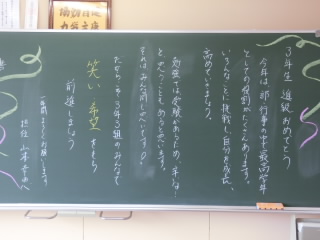 3年生 進級 おめでとう
今年は部・行事の中で最高学年
としての役割がたくさんあります。
いろんなことに挑戦し自分を成長
高めていきましょう。
勉強では受験があるため、辛いな!
と思うこともあると思います。
それは、みんな同じです!
だから、3年3組のみんなで
笑い 希望 をもち
前進しましょう
一年間よろしくお願いします
担任 山本